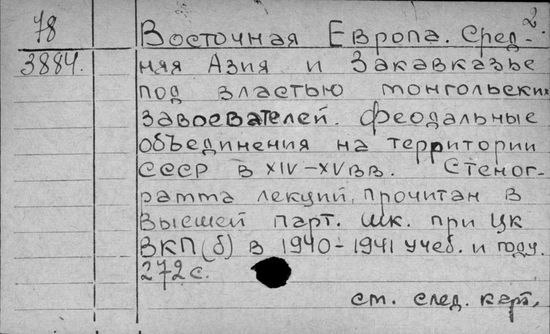 78
3884.
2
Восточная Европа. Сред-
няя Азия и Закавказье
под властью монгольских
завоевателей. Феодальные
объединения на территории
СССР в XIV–XV вв. Стеног-
рамма лекций, прочитан в
Высшей парт. шк. при ЦК
ВКП(б) в 1940–1941 учеб. и году.
272с.
см. след. карт.